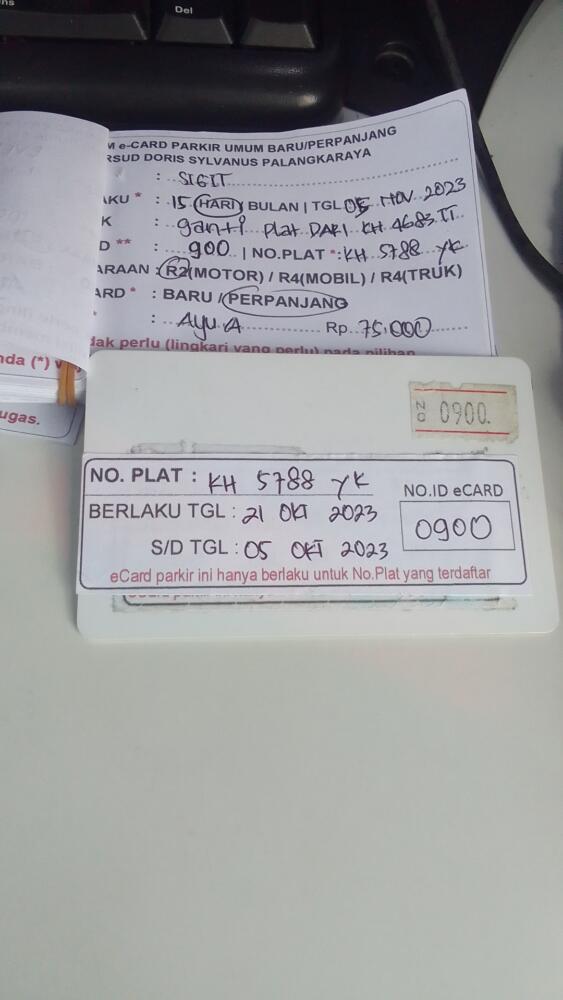 Del
M e-CARD PARKIR UMUM BARU/PERPANJANG
RSUD DORIS SYLVANUS PALANGKARAYA
: SIGIT
AKU * : 15 HARI / BULAN | TGL 05 NOV 2023
K : ganti Plat DARI KH 4683 TT
D ** : 900 | NO.PLAT * : KH 5788 YK
ARAAN : R2(MOTOR) / R4(MOBIL) / R4(TRUK)
ARD * : BARU / PERPANJANG
* : Ayu.A Rp 75.000
dak perlu (lingkari yang perlu) pada pilihan
nda (*)
ugas.
NO 0900.
NO. PLAT : KH 5788 YK
NO.ID eCARD
BERLAKU TGL : 21 OKT 2023
0900
S/D TGL : 05 OKT 2023
eCard parkir ini hanya berlaku untuk No.Plat yang terdaftar